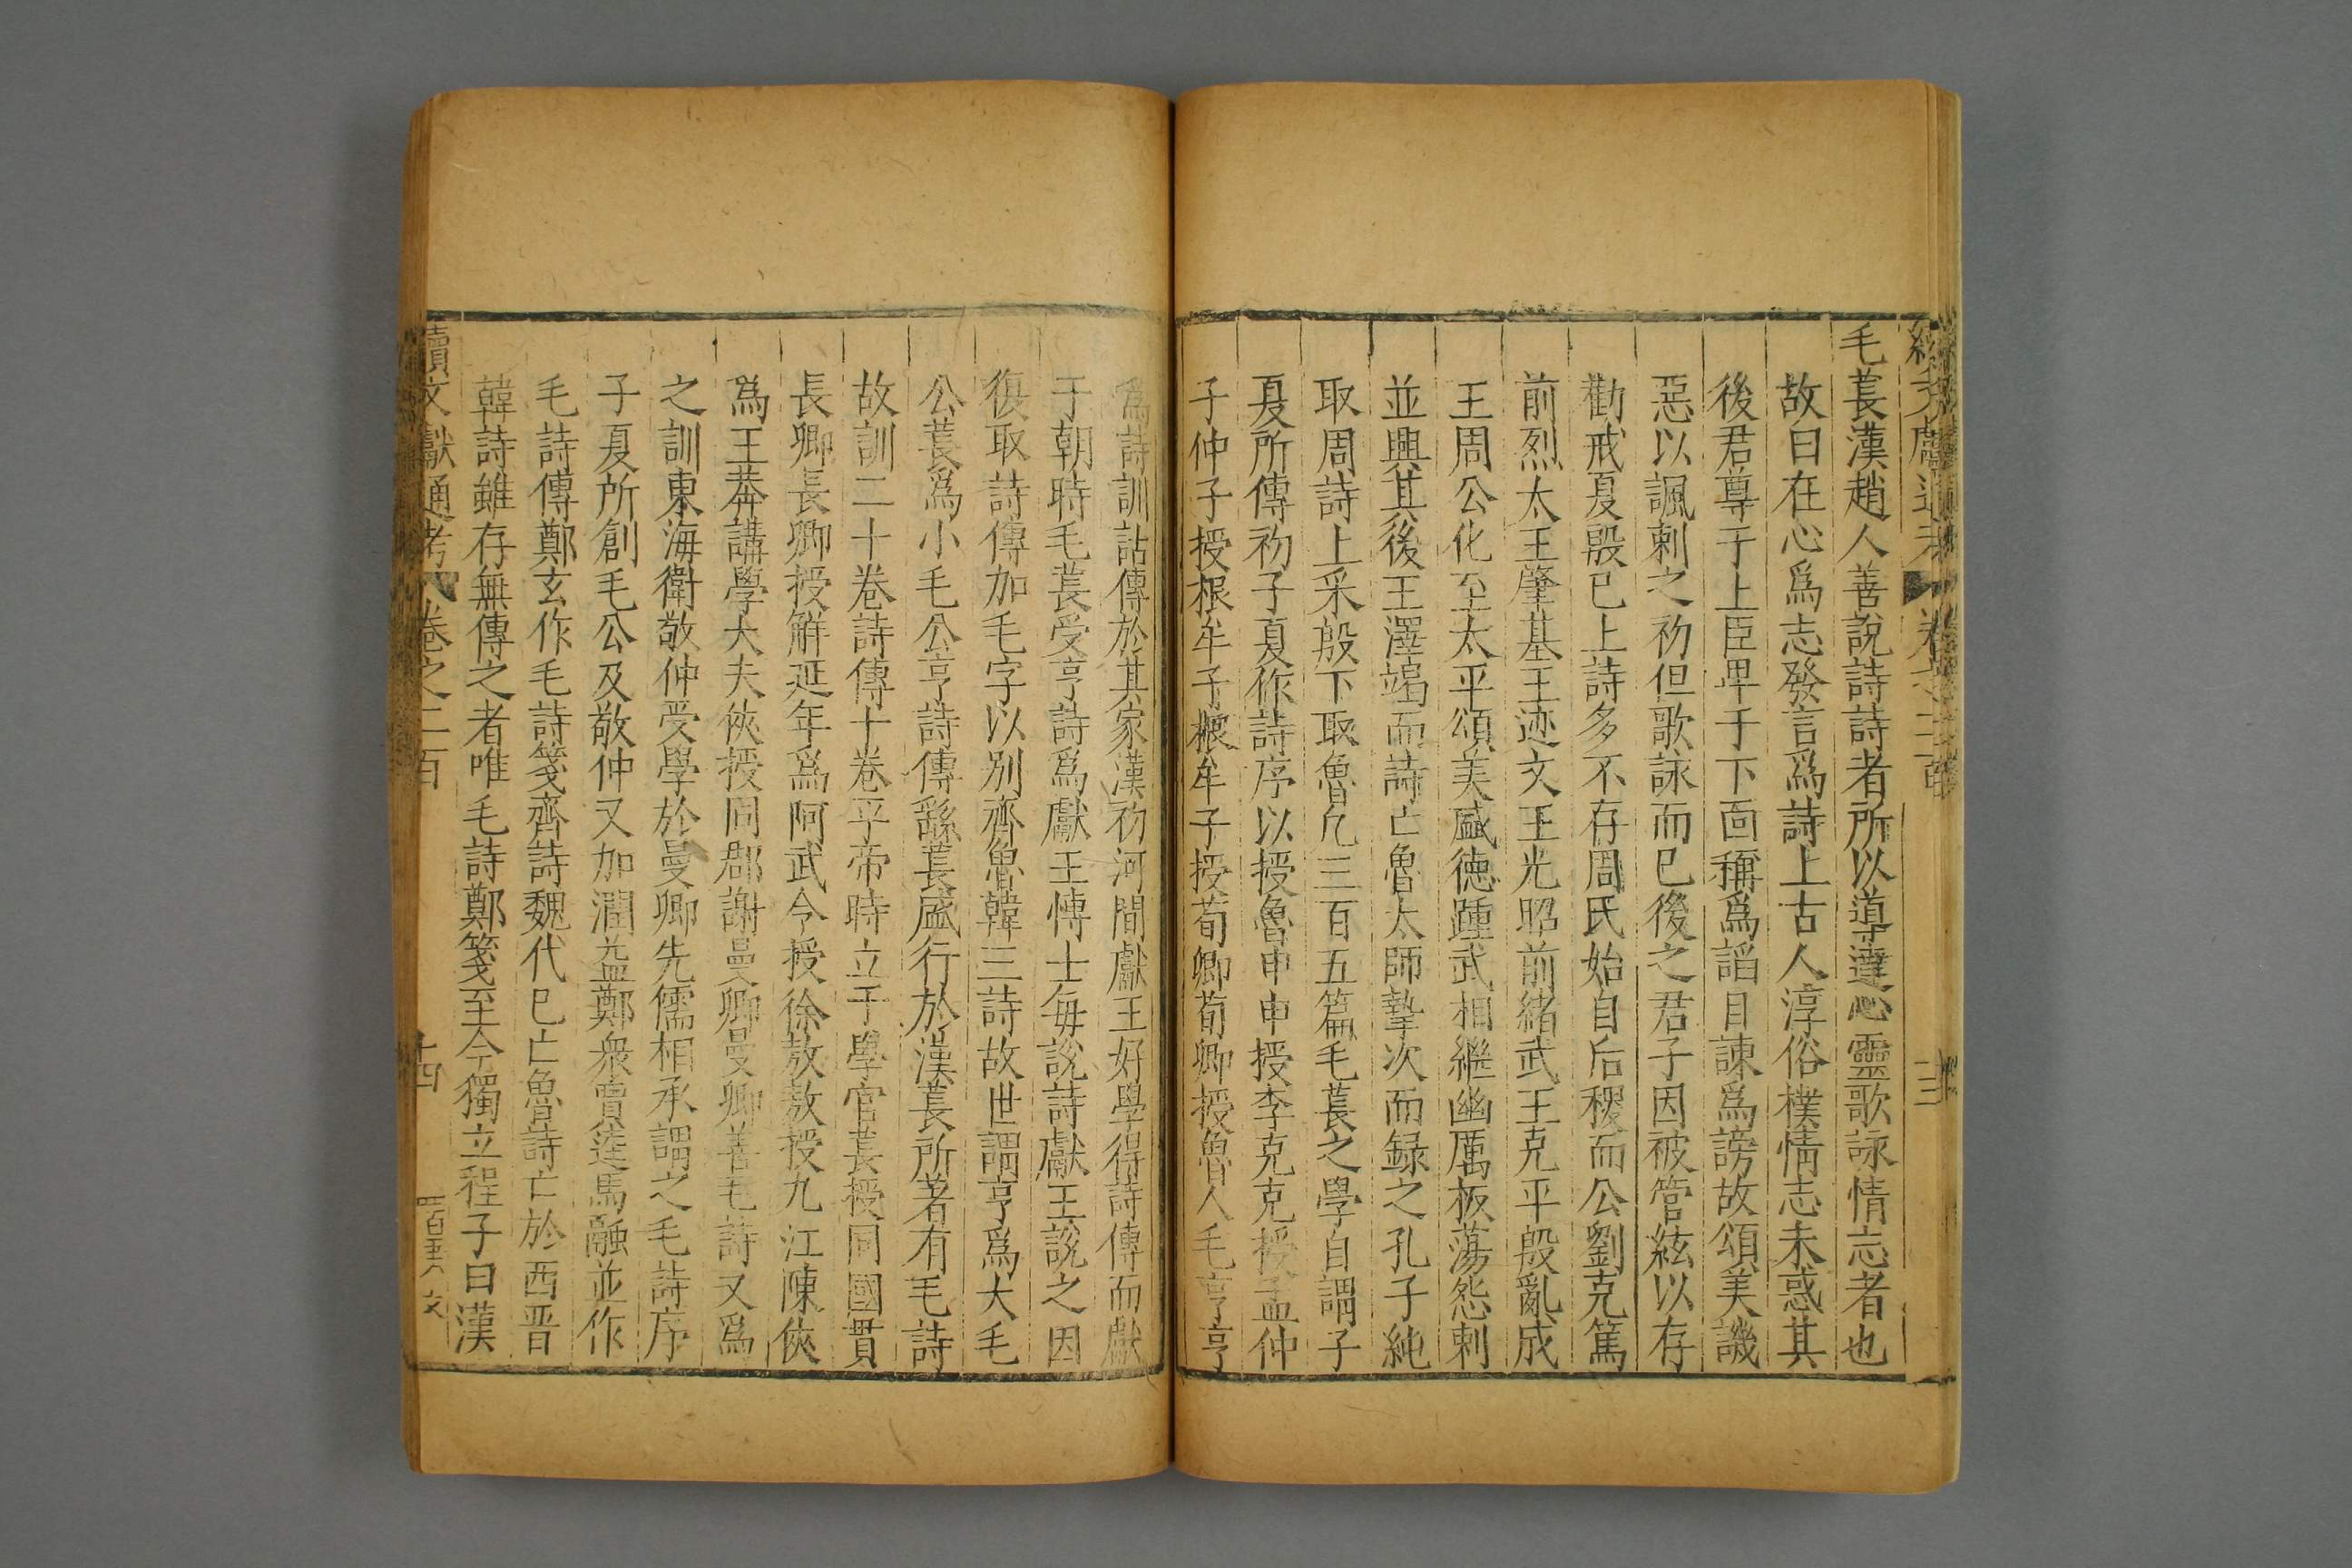 毛萇漢趙人善說詩詩者所以導達心靈歌詠情志者也
故曰在心爲志發言爲詩上古人淳俗樸情志未惑其
後君尊于上臣卑于下面稱爲諂目諫爲謗故頌美譏
惡以諷刺之初但歌詠而已後之君子因被管絃以存
勸戒夏殷已上詩多不存周氏始自后稷而公劉克篤
前烈太王肇基王迹文王光昭前緒武王克平殷亂成
王周公化至太平頌美盛德踵武相繼幽厲板蕩怨刺
並興其後王澤竭而詩亡魯太師摯次而録之孔子純
取周詩上采殷下取魯凡三百五篇毛萇之學自謂子
夏所傳初子夏作詩序以授魯申申授李克克授孟仲
子仲子授根牟子根牟子授荀卿荀卿授魯人毛亨亨
爲詩訓詁傳於其家漢初河間獻王好學得詩傳而獻
于朝時毛萇受亨詩爲獻王博士每說詩獻王說之因
復取詩傳加毛字以别齊魯韓三詩故世謂亨爲大毛
公萇爲小毛公亨詩傳繇萇盛行於漢萇所著有毛詩
故訓二十卷詩傳十卷平帝時立于學官萇授同國貫
長卿長卿授解延年爲阿武令授徐敖敖授九江陳俠
爲王莽講學大夫俠授同郡謝曼卿曼卿善毛詩又爲
之訓東海衛敬仲受學於曼卿先儒相承謂之毛詩序
子夏所創毛公及敬仲又加潤益鄭衆賈逵馬融並作
毛詩傳鄭玄作毛詩箋齊詩魏代已亡魯詩亡於西晋
韓詩雖存無傳之者唯毛詩鄭箋至今獨立程子曰漢
續文獻通考 卷之二百 十四